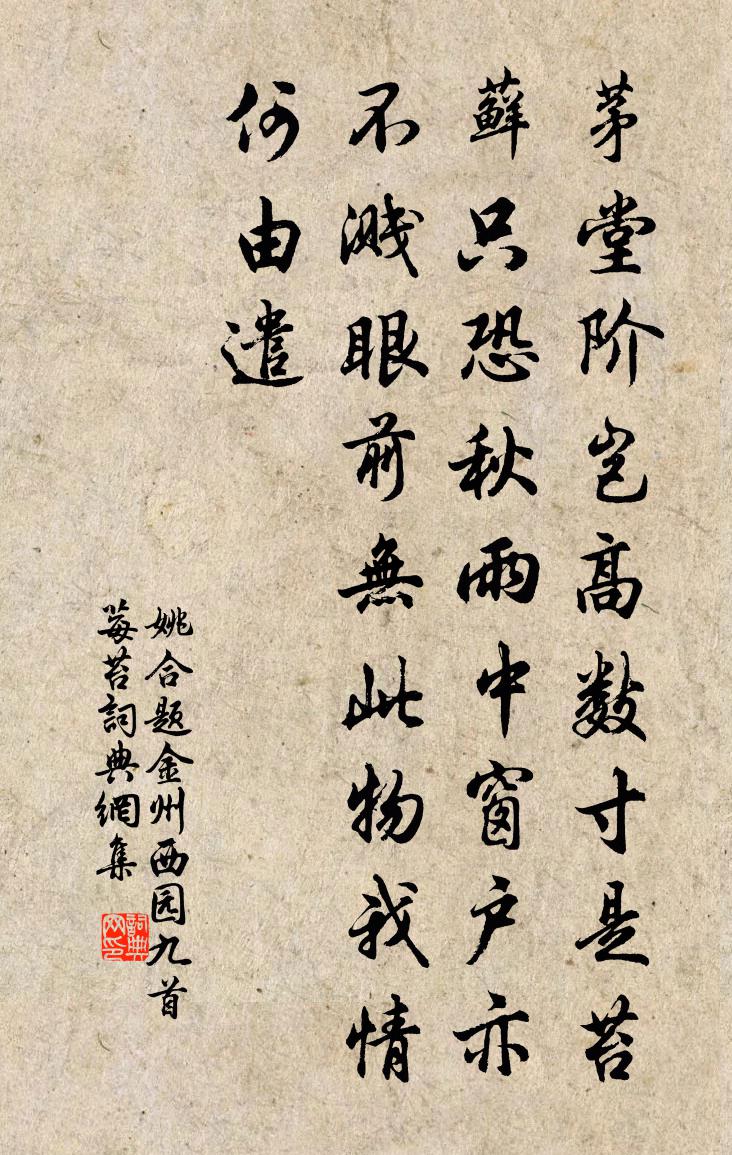 茅堂阶岂高数寸是苔
蘚只恐秋雨中窗户亦
不溅眼前無此物我情
何由遣
姚合题金州西园九首
莓苔詞典網集
詞典网印